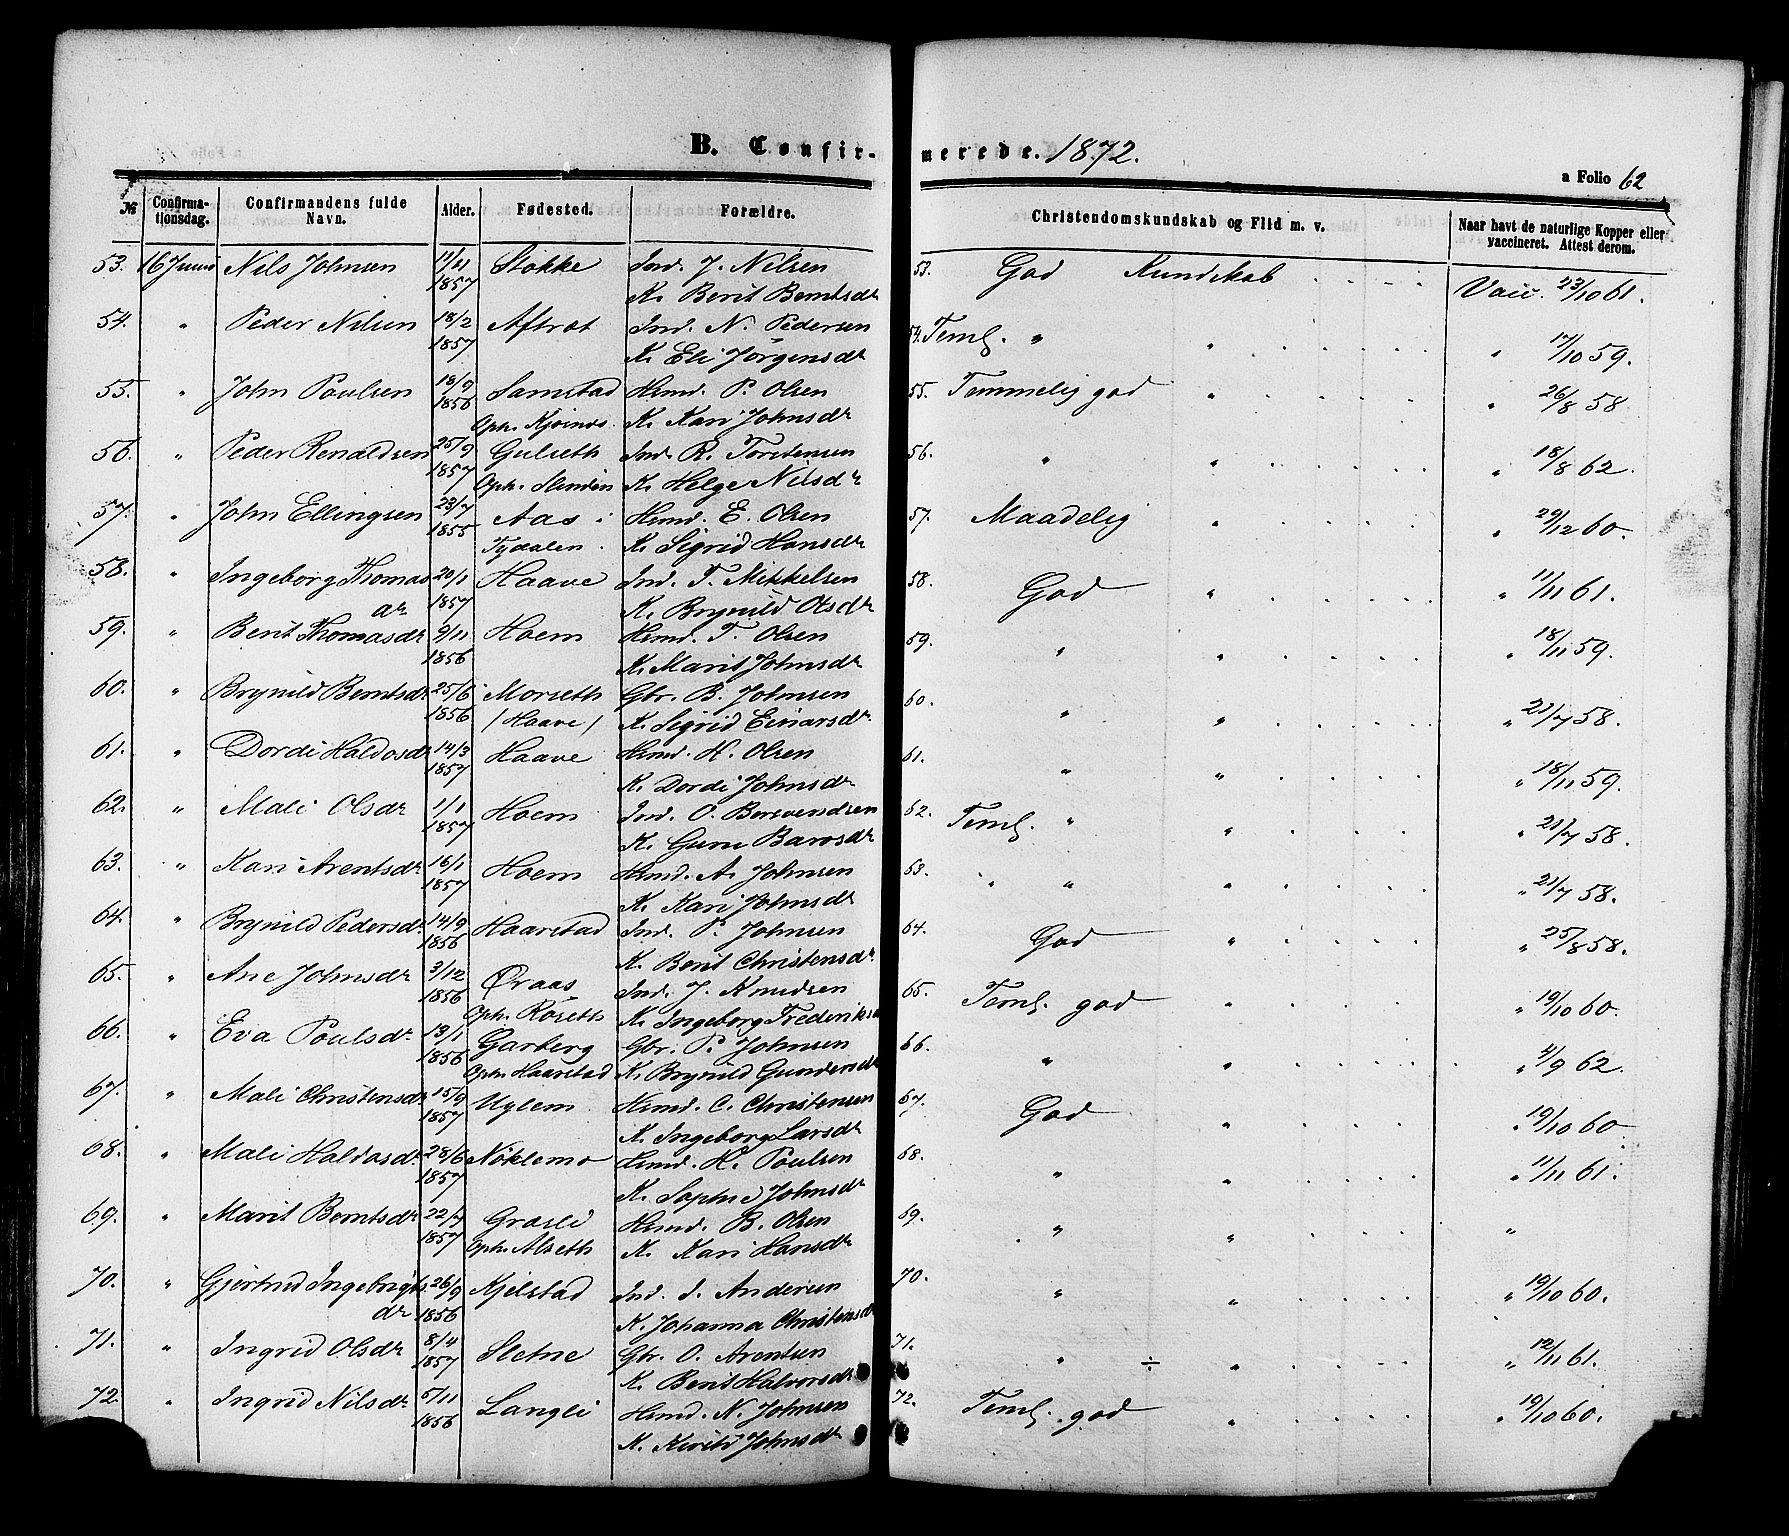 B. Confirmerede. 1872.
a Folio 62
№ Confirmationsdag. Confirmandens fulde Navn. Alder. Fødested. Forældre. Christendomskundskab og Flid m. v. Naar havt de naturlige Kopper eller vaccineret. Attest derom.
53. 16 Juni Nils Johnsen 11/11 1857 Stokke Ind. J. Nilsen 53. God Kundskab Vacc. 23/10 61.
K. Berit Berntsdr
54. " Peder Nilsen 18/2 1857 Aftrat Ind. N. Pedersen 54. Teml. " " " 17/10 59.
K. Eli Jørgensdr
55. " John Poulsen 18/9 1856 Samstad Hsmd. P. Olsen 55. Temmelig god " " 26/8 58
Oph. K. Kari Johnsdr
56. " Peder Renaldsen 25/9 1857 Gulseth Ind. R. Torstensen 56. " " " 18/8 62.
Oph. K. Helge Nilsdr
57. " John Ellingsen 23/7 1855 Aas i Hsmd. E. Olsen 57. Maadelig " " 29/12 60.
Tydalen. K. Sigrid Hansdr
58. " Ingeborg Thomas 20/1 1857 Haave Ind. T. Mikkelsen 58. God " " 11/11 61.
dr K. Brynild Olsdr
59. " Berit Thomasdr 9/11 1856 Hoem Hsmd. T. Olsen 59. " " " 18/11 59.
K. Marit Johnsdr
60. " Brynild Berntsdr 25/6 1856 Morseth Gbr. B. Johnsen 60. " " " 21/7 58.
/Haave/ K. Sigrid Einarsdr
61. " Dordi Haldosdr 14/3 1857 Haave Hsmd. H. Olsen 61. " " " 18/11 59.
K. Dordi Johnsdr
62. " Mali Olsdr 1/1 1857 Hoem Ind. O. Bersvendsen 62. Teml. " " " 21/7 58.
K. Guru Barosdr
63. " Kari Arentsdr 16/1 1857 Hoem Hsmd. A. Johnsen 63. " " " " 21/7 58.
K. Kari Johnsdr
64. " Brynild Pedersdr 14/9 1856 Haarstad Ind. P. Johnsen 64. God " " 25/8 58.
K. Berit Christensdr
65. " Ane Johnsdr 3/12 1856 Øraas Ind. J. Knudsen 65. Teml. god " " 19/10 60.
Oph. Røseth K. Ingeborg Frederiks
66. " Eva Poulsdr 13/1 1856 Garberg Gbr. P. Johnsen 66. " " " 4/9 62.
Oph. Haarstad K. Brynild Gundersdr
67. " Mali Christensdr 15/9 1857 Uglem Hsmd. C. Christensen 67. God " " 19/10 60
K. Ingeborg Larsdr
68. " Mali Haldosdr 28/6 1857 Nøklemo Hsmd. H. Poulsen 68. " " " 11/11 61.
K. Sophie Johnsdr
69. " Marit Berntsdr 22/7 1857 Græsli Hsmd. B. Olsen 69. " " "
Oph. Alseth K. Kari Hansdr
70. " Gjertrud Ingebrigts 26/9 1856 Kjelstad Ind. I. Andersen 70. " " " 19/10 60.
dr K. Johanna Christensdr
71. " Ingrid Olsdr 8/4 1857 Sletne Gbr. O. Arentsen 71. " ÷ " " 12/11 61.
K. Berit Halvorsdr
72. " Ingrid Nilsdr 5/11 1856 Langli Hsmd. N. Johnsen 72. Teml. god " " 19/10 60.
K. Johnsdr